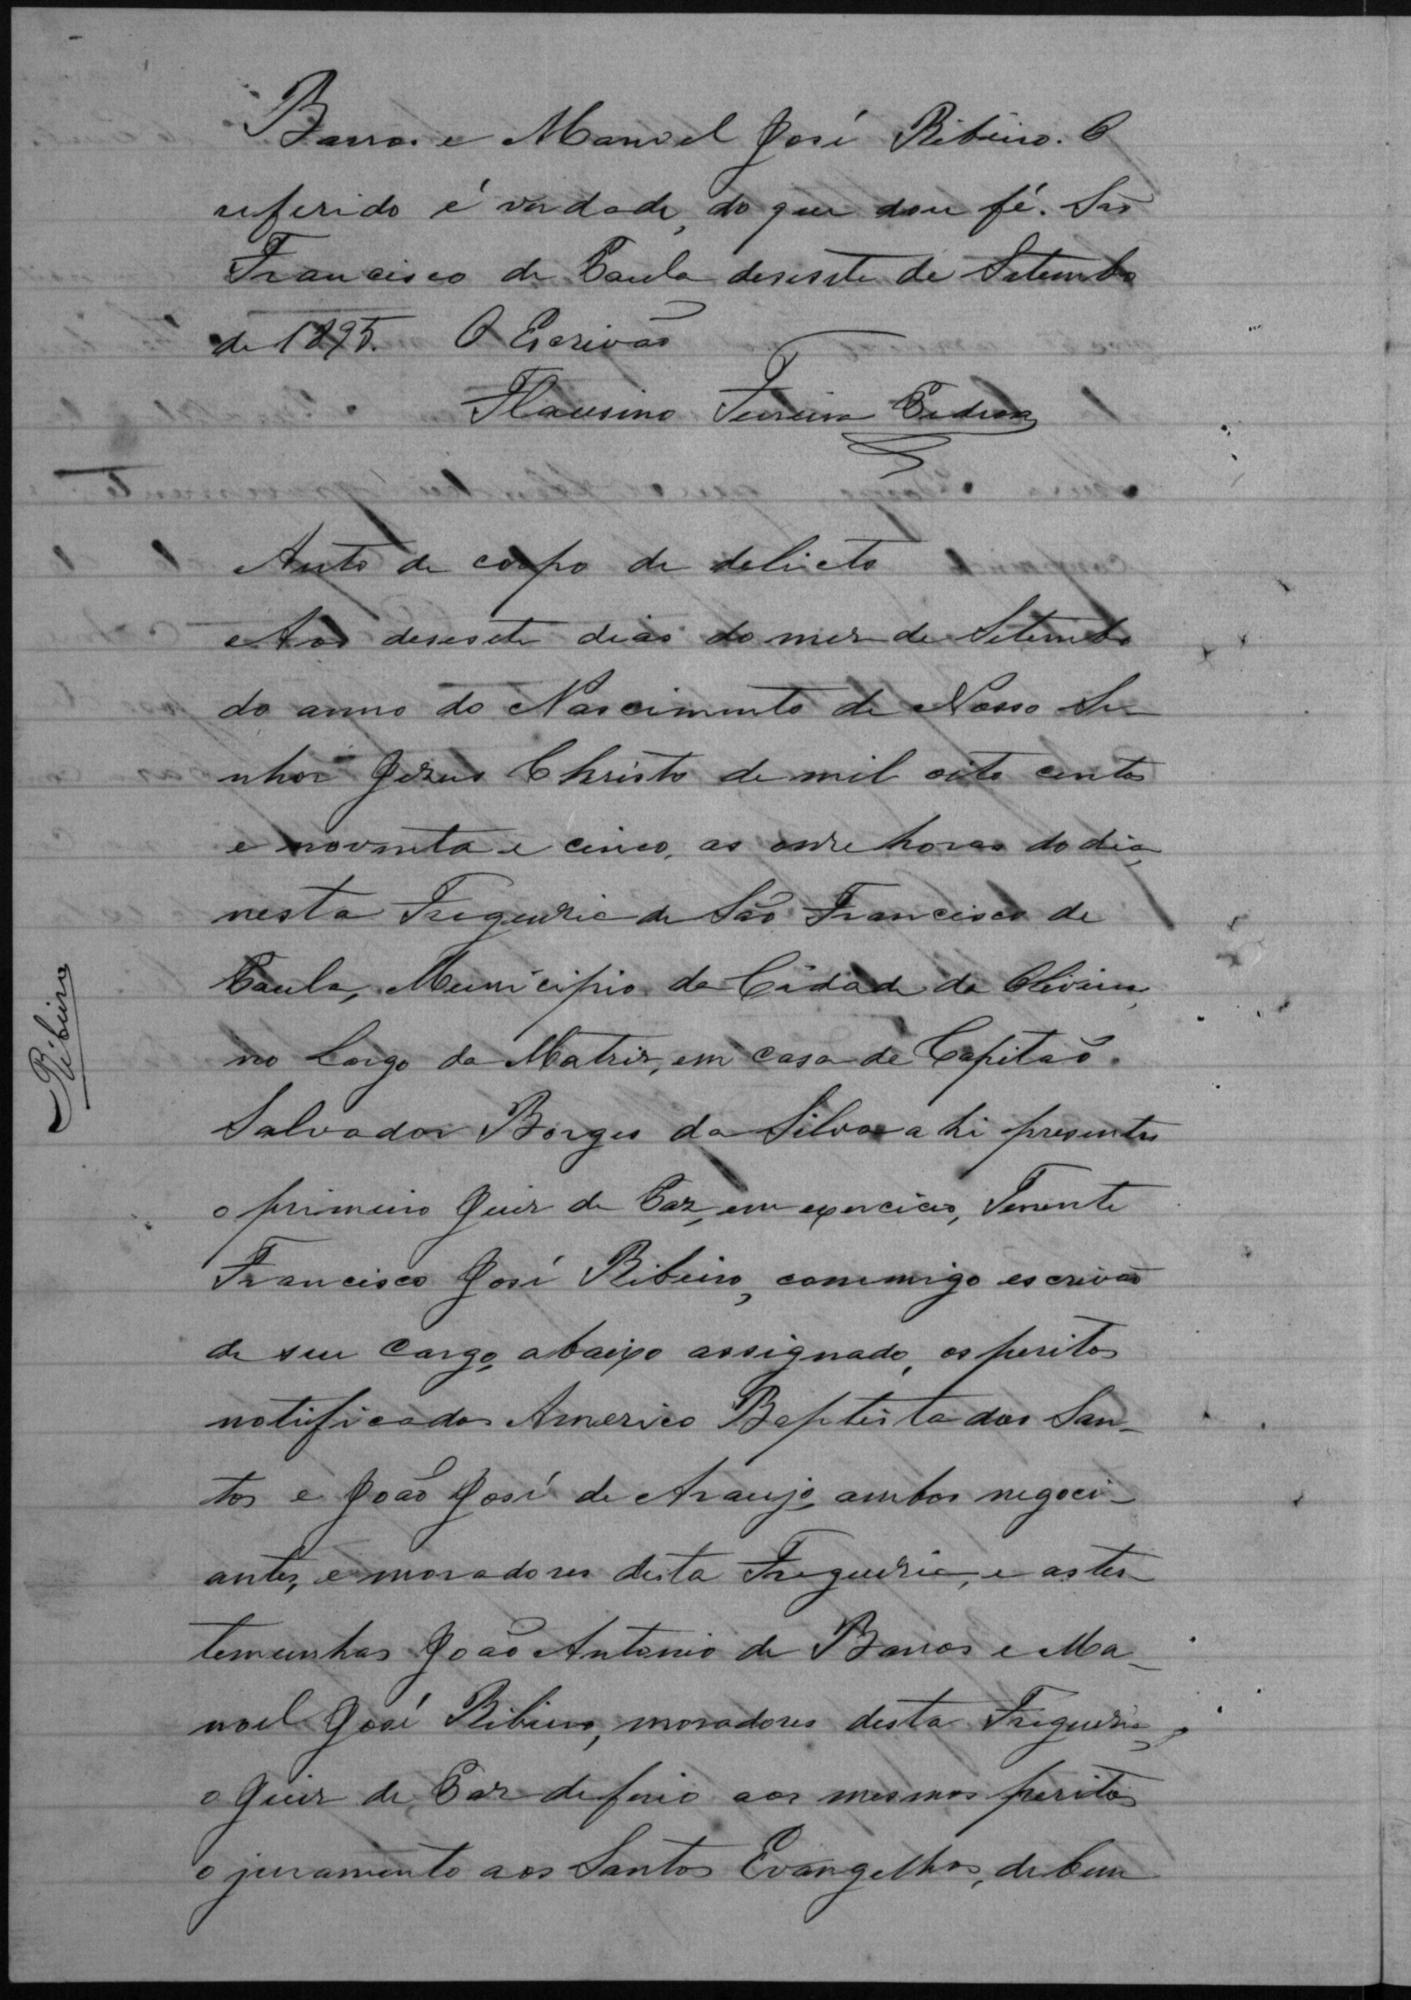 Barros e Manoel José Ribeiro. O
referido é verdade, do que dou fé. São
Francisco de Paula desesete de Setembro
de 1895. O Escrivão
Flausino Ferreira
Auto de corpo de delicto
Aos desesete dias do mez de Setembro
do anno do Nascimento de Nosso Se-
nhor Jezus Christo de mil oito centos
e noventa e cinco, as onze horas do dia,
nesta Freguezia de São Francisco de
Paula, Municipio da Cidade de Oliveira,
no Largo da Matriz, em casa de Capitão
Salvador Borges da Silva ahi presentes
o primeiro Juiz de Paz, em exercicio, Tenente
Francisco José Ribeiro, commigo escrivão
de seu cargo, abaixo assignado, os peritos
notificados Americo Baptista dos San-
tos e João José de Araujo, ambos negoci-
antes, e moradores desta Freguezia, e as tes-
temunhas João Antonio de Barros e Ma-
noel José Ribeiro, moradores desta Freguezia,
o Juiz de Paz deferio aos mesmos peritos
o juramento aos Santos Evangelhos, de bem
Ribeiro